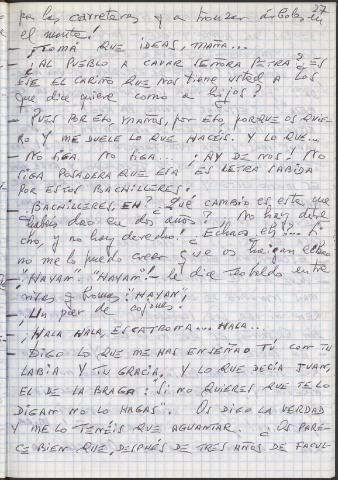 27
por las carreteras y a tronzar árboles en
el monte!
— ¡TOMÁ QUE IDEAS, MAÑA...
— ¡AL PUEBLO A CAVAR SEÑORA PETRA? ¿ES
ESE EL CARIÑO QUE NOS tiene usted A LOS
que dice quiere como a hijos?
— PUES POR ESO, MAÑOS, por ESO, PORQUE OS QUIE-
RO Y ME DUELE LO QUE HACÉIS. Y LO QUE...
— NO SIGA. NO SIGA... ¡AY DE NOS! NO
SIGA POSADERA QUE ESA ES LETRA SABIDA
POR ESTOS BACHILLERES.
— BACHILLERES, EH? ¿Qué cambio es este que
habéis dao en dos años? No hay dere-
cho, y no hay derecho! ¿Echaos, eh?... Si
no me lo puedo creer que os haigan
— "HAYAN". "HAYAN"!— le dice entre
y bromas "HAYAN",
— ¡Un par de cojones!
— ¡HALA HALA, ESCATROMA... HALA...
— DIGO LO QUE ME HAS ENSEÑAO TÚ CON TU
LABIA Y TU GRACIA. Y LO QUE DECÍA JUAN,
EL DE LA BRAGA: "SI NO QUIERES QUE TE LO
DIGAN NO LO HAGAS". OS DIGO LA VERDAD
Y ME LO TENÉIS QUE AGUANTAR. ¿OS PARE-
CE BIEN QUE, DESPUÉS DE TRES AÑOS DE FACUL-